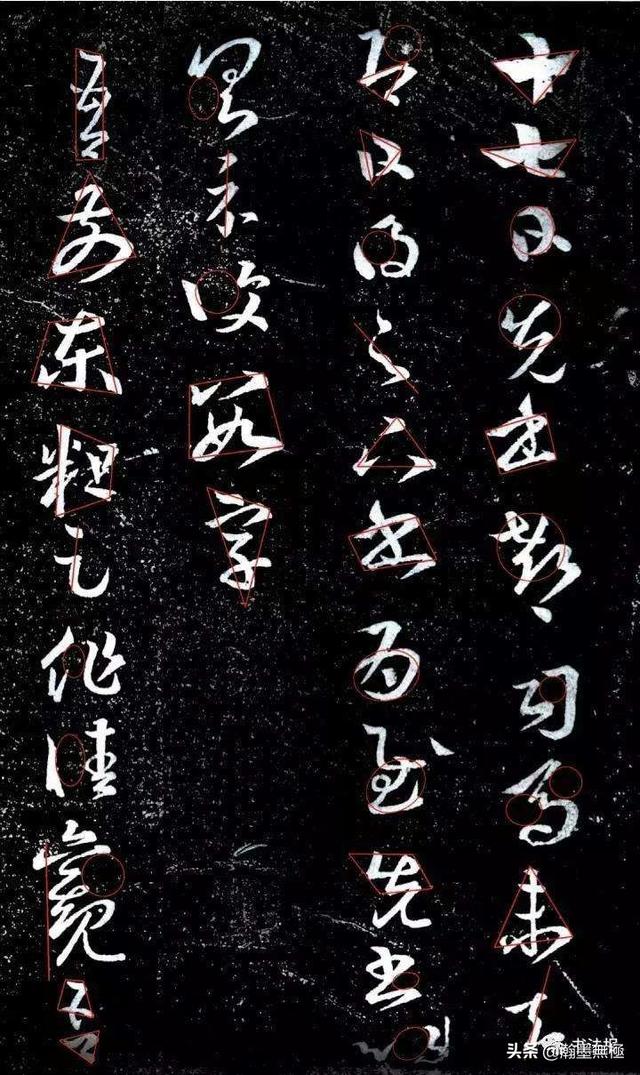 十七日先書郗司馬未去
即日得足下書為慰先書以
具示復數字
吾前東粗足作佳觀吾
书法报
头条 @瀚墨無極